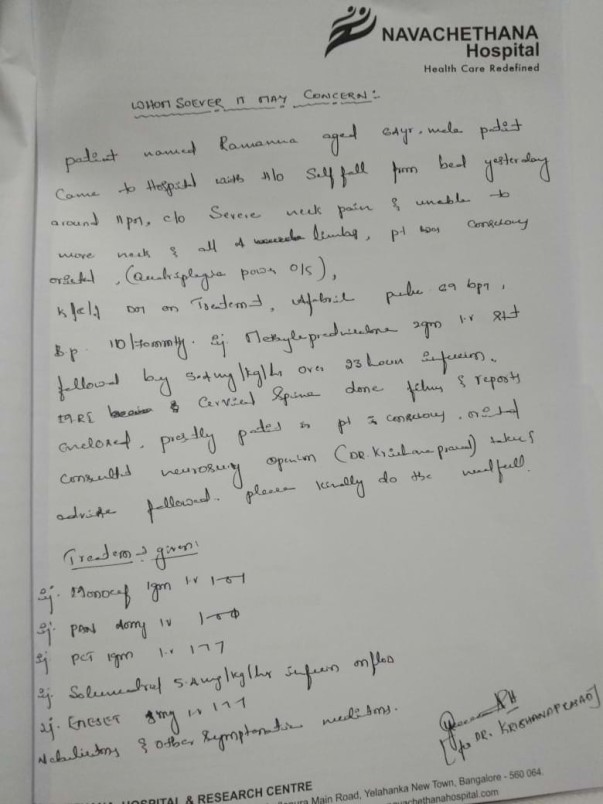 NAVACHETHANA
Hospital
Health Care Redefined
WHOM SOEVER IT MAY CONCERN:-
patient named Ramanna aged 64yr. male patient
Came to Hospital with H/o Self fall from bed yesterday
around 11pm, c/o Severe neck pain & unable to
move neck & all limbs, pt was conscious
oriented, (Quadriplegia power 0/5),
K/c/o on Treatment, Afebrile pulse 69 bpm,
B.p. 110/70mmHg. Inj. Methylprednisolone 2gm I.V Stat
followed by 5.4mg/kg/hr over 23 hour infusion.
MRI Cervical Spine done films & reports
enclosed. presently patient is conscious, oriented
consulted neurosurg opinion (DR. Krishna prasad) taken &
advise followed. please kindly do the needfull.
Treatment given:
Inj. Monocef 1gm I.V 1-0-1
Inj. PAN 40mg IV 1-0-0
Inj PCT 1gm I.V 1-1-1
Inj. Solumedrol 5.4mg/kg/hr infusion onflow
Inj. EMESET 8mg I.V 1-1-1
Nebulisations & other Symptomatic medications.
[for DR. KRISHNAPRASAD]
HOSPITAL & RESEARCH CENTRE
Main Road, Yelahanka New Town, Bangalore - 560 064.
navachethanahospital.com